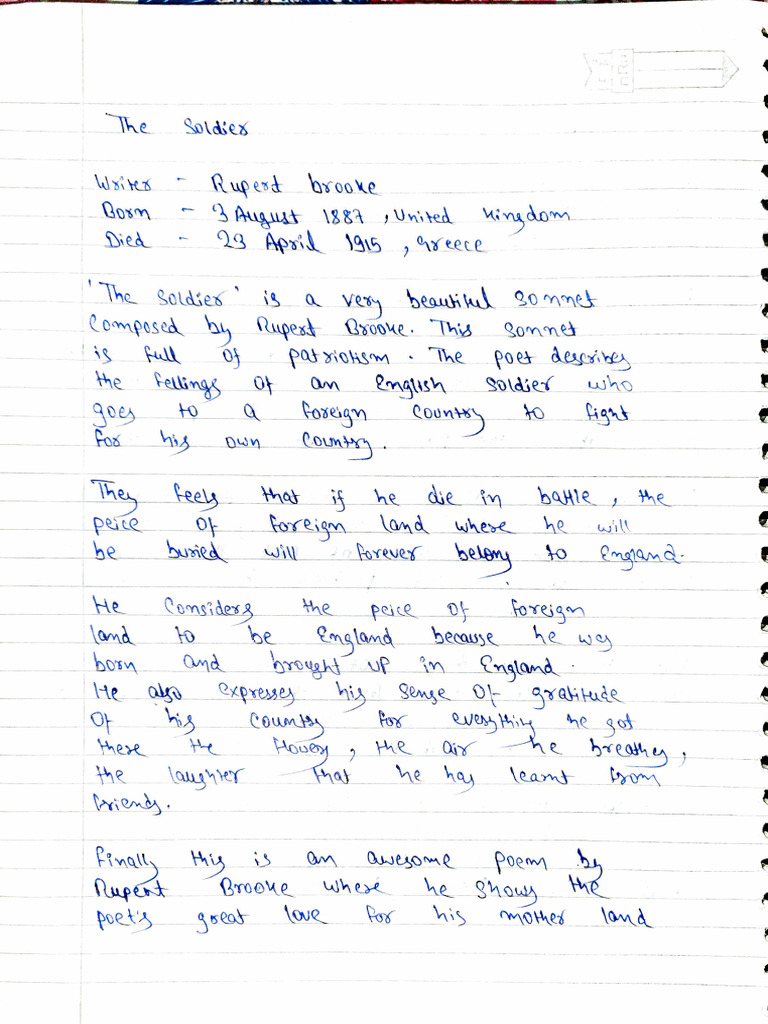 The Soldier
Writer - Rupert brooke
Born - 3 August 1887 , United Kingdom
Died - 23 April 1915 , Greece
'The Soldier' is a very beautiful sonnet
Composed by Rupert Brooke. This sonnet
is full of patriotism. The poet describes
the fellings of an English soldier who
goes to a foreign country to fight
for his own country.
They feels that if he die in battle, the
peice of foreign land where he will
be buried will forever belong to England.
He Considers the peice of foreign
land to be England because he was
born and brought up in England.
He also expresses his sense of gratitude
Of his country for everything he got
there the flowers, the air he breathes,
the laughter that he has learnt from
friends.
Finally this is an awesome poem by
Rupert Brooke where he shows the
poet's great love for his mother land